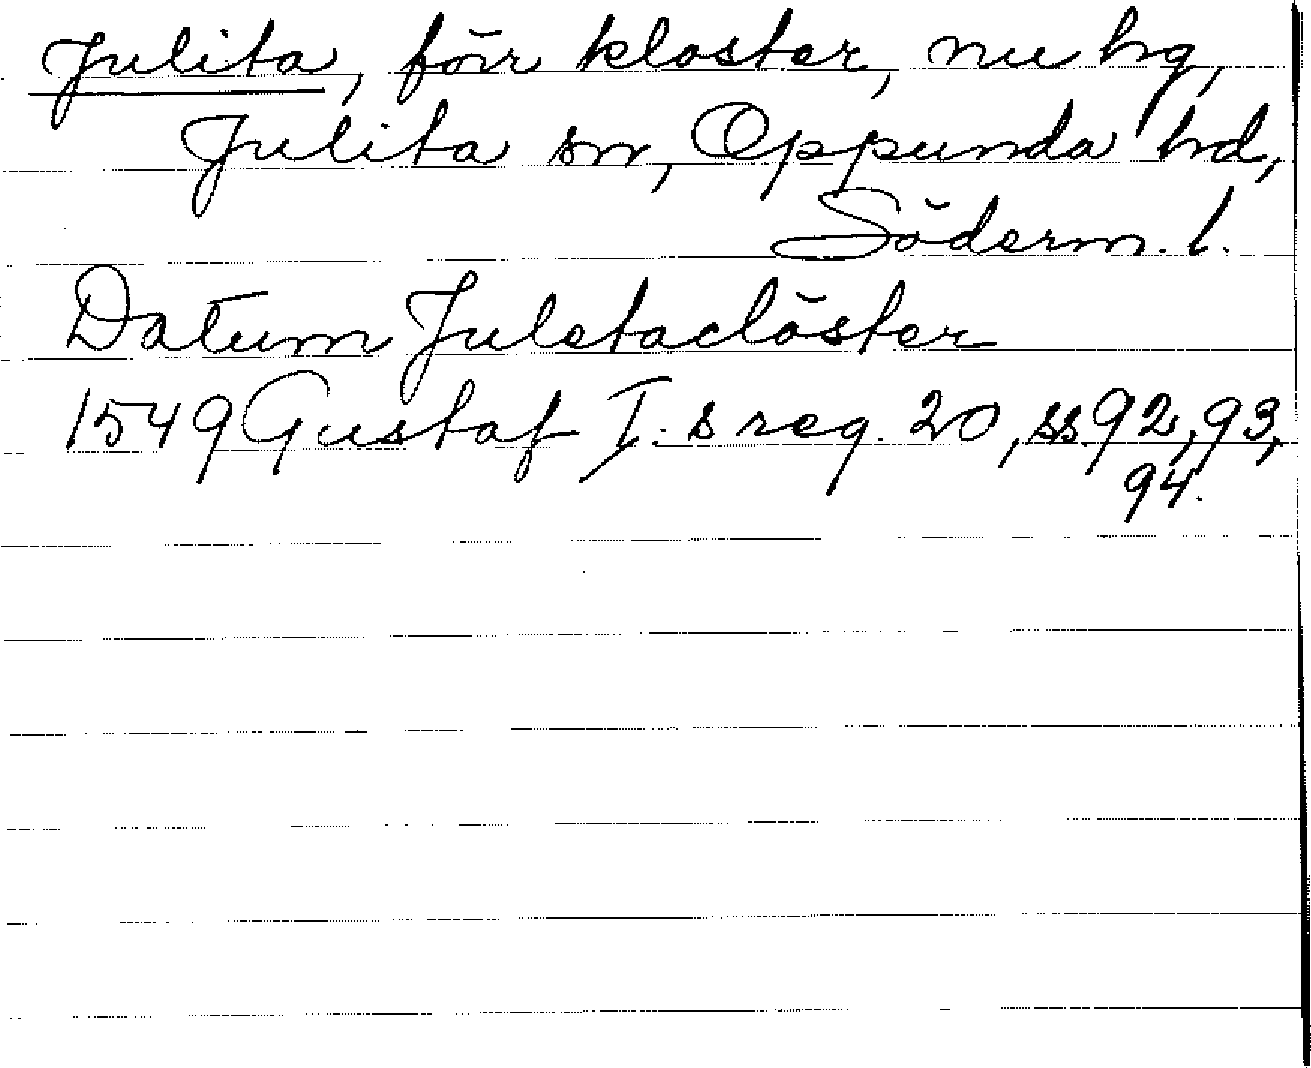 Julita, förr kloster, nu hg,
Julita sn, Oppunda hd,
Söderm. l.
Datum Juletaclöster
1549 Gustaf I:s reg. 20, ss 92, 93,
94.